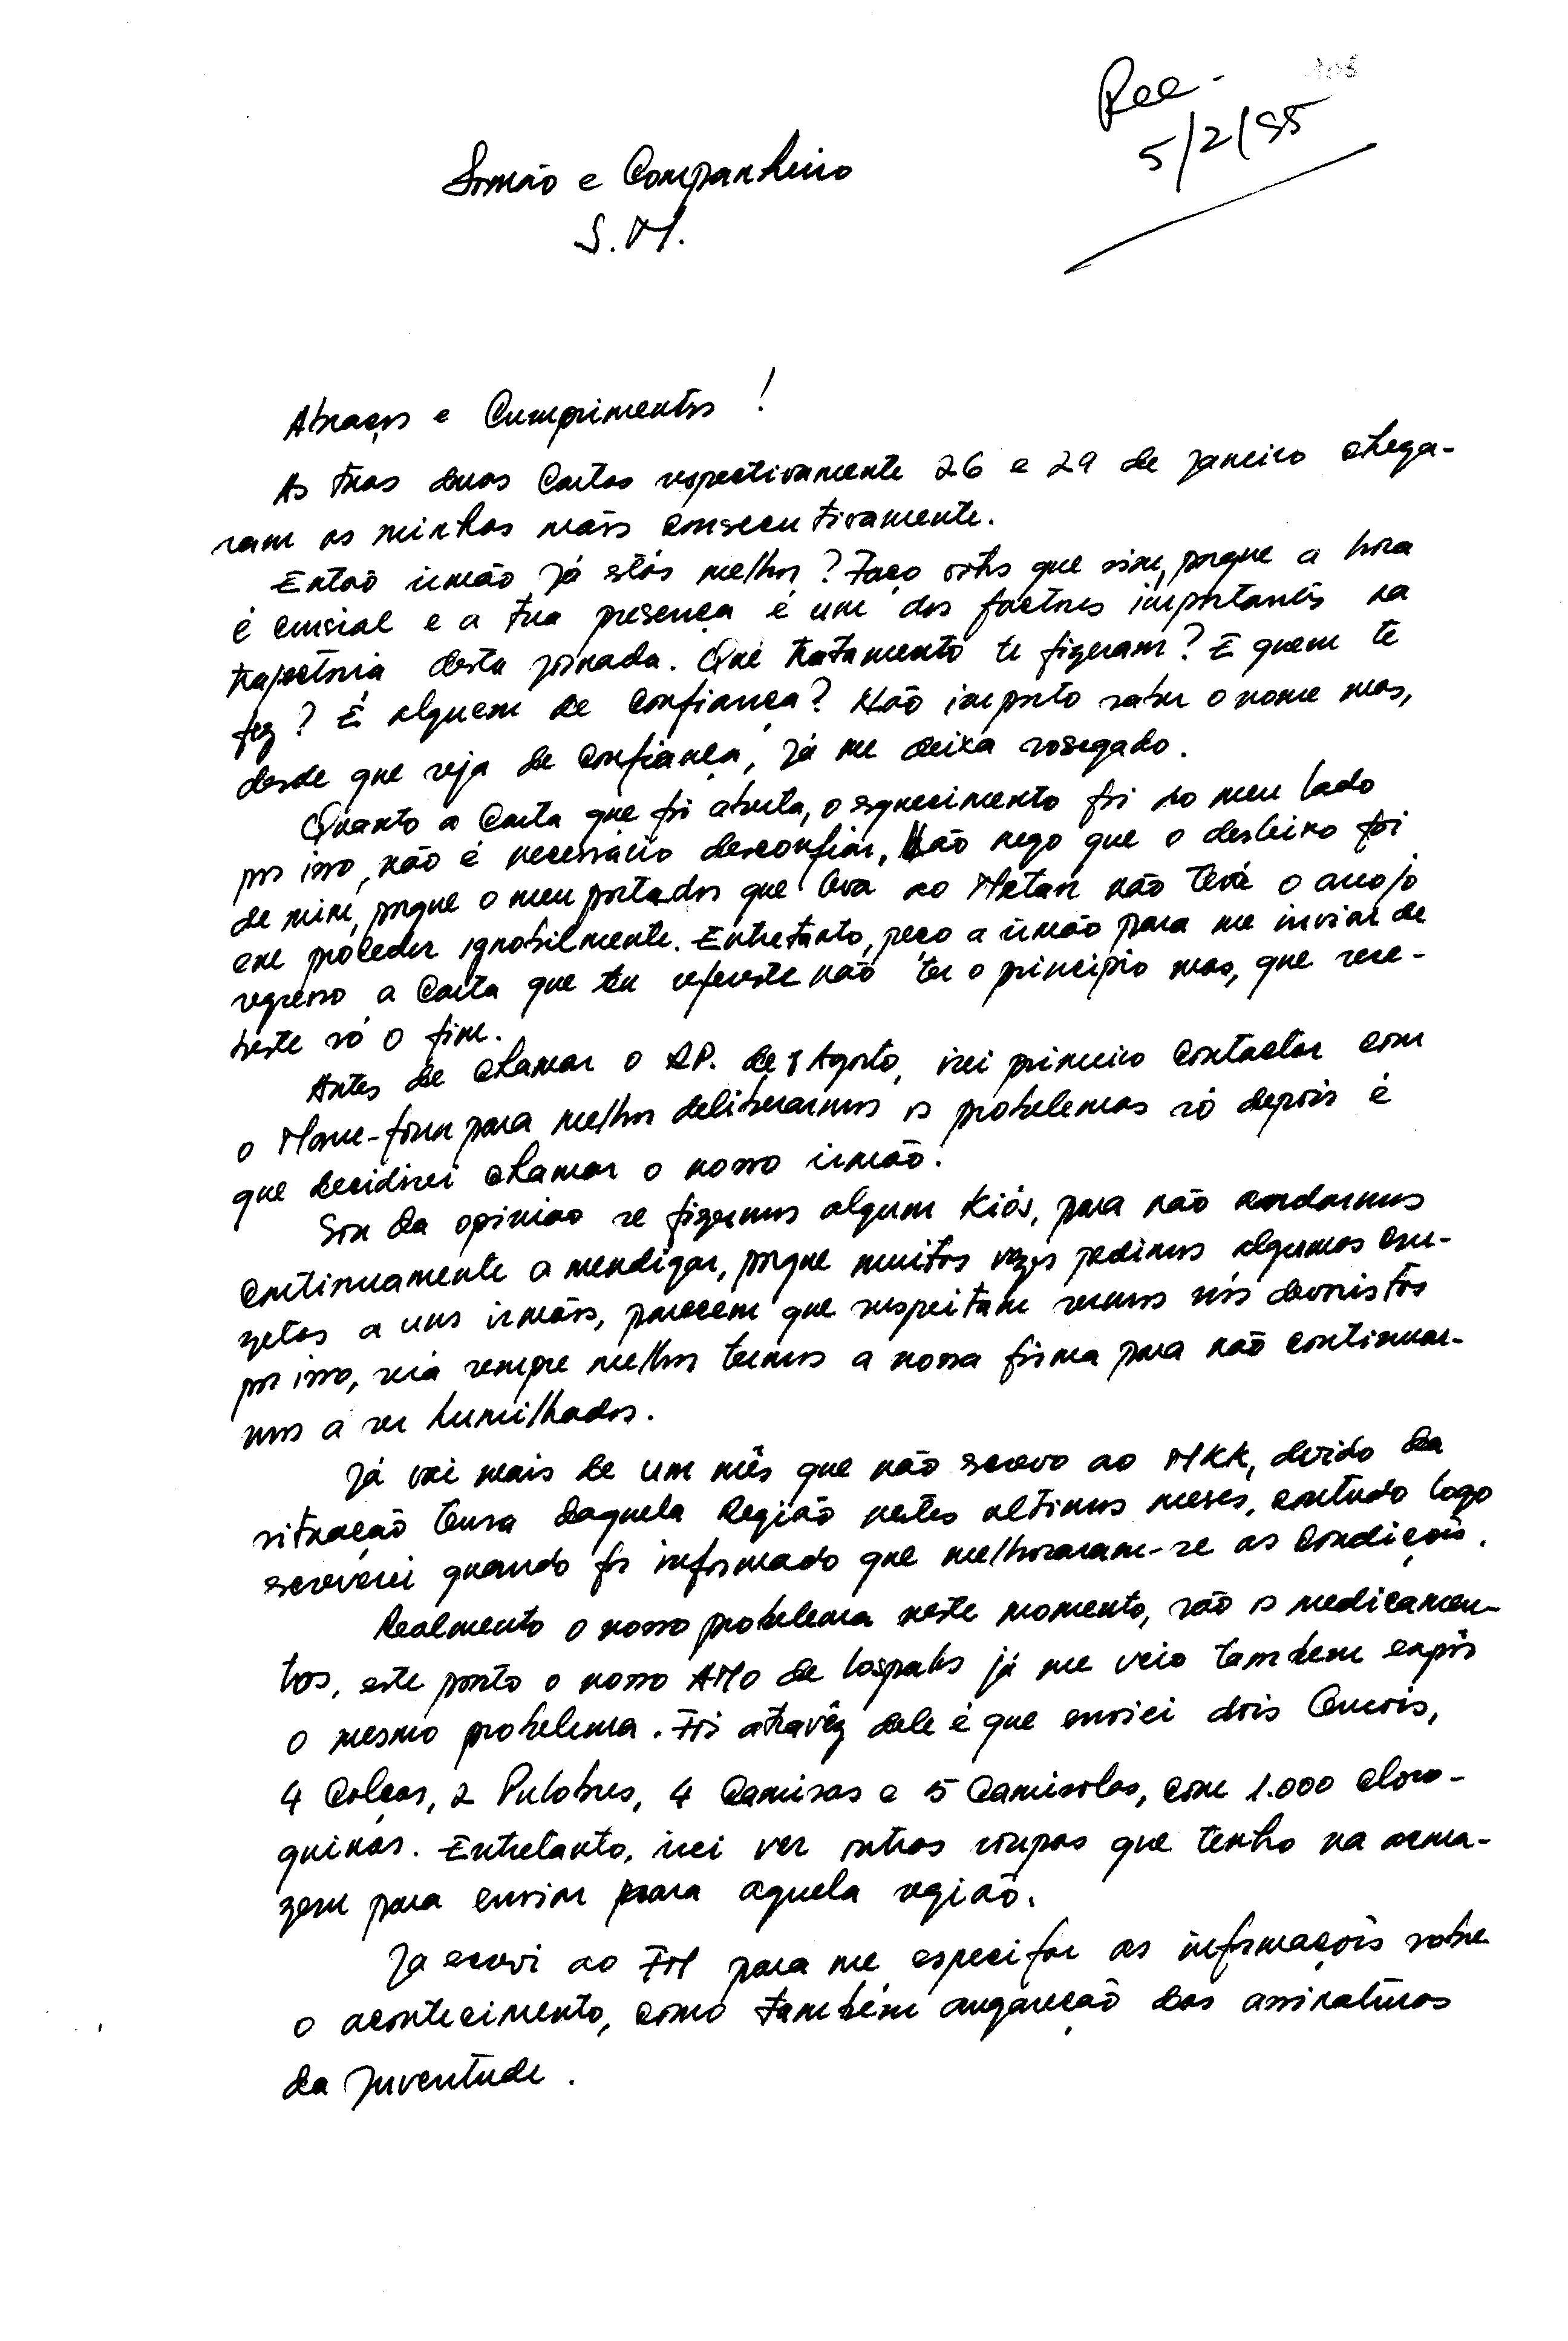 Rec-
5/2/95
Irmão e Companheiro
S.M.
Abraços e Cumprimentos !
As tuas duas Cartas respectivamente 26 e 29 de Janeiro chega-
ram as minhas mãos consecutivamente.
Então irmão já estás melhor? Faço votos que sim, porque a hora
é crusial e a tua presença é um dos factores importantes na
trajectória desta jornada. Que tratamento te fizeram? E quem te
fez? É alguem de confiança? Não importo saber o nome mas,
desde que seja de confiança, já me deixa sosegado.
Quanto a Carta que foi aberta, o esquecimento foi do meu lado
por isso, não é necessário desconfiar, Não nego que o desleixo foi
de mim, porque o meu portador que leva ao Metan não terá o arrojo
em proceder ignobilmente. Entretanto, peço a irmão para me inviar de
regresso a Carta que tu referiste não ter o principio mas, que rece-
beste só o fim.
Antes de chamar o RP. de 8 Agosto, irei primeiro contactar com
o para melhor deliberarmos os probelemas só depois é
que decidirei chamar o nosso irmão.
Sou da opinião se fizermos algum Kiós, para não andarmos
continuamente a mendigar, porque muitas vezes pedimos algumas
a uns irmãos, parecem que suspeitam sermos nós devoristas
por isso, será sempre melhor termos a nossa firma para não continuar-
mos a ser humilhados.
Já vai mais de um mês que não screvo ao MKK, devido da
situação tensa daquela Região nestes ultimos meses, contudo logo
screverei quando for informado que melhoraram-se as condições.
Realmento o nosso probelema neste momento, são os medicamen-
tos, este ponto o nosso AMO de lospalos já me veio tambem expôr
o mesmo probelema. Foi atravêz dele é que enviei dois Lençois,
4 Calças, 2 Pulobres, 4 Camisas e 5 Camisolas, com 1.000 cloro-
quinas. Entretanto, irei ver outras roupas que tenho na arma-
zem para enviar para aquela região.
Ja screvi ao FM para me especifar as informações sobre
o acontecimento, como também angareção das assinaturas
da Juventude.